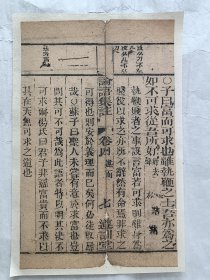 ○子曰富而可求也雖執鞭之士吾亦為之
如不可求從吾所好
執鞭賤者之事設言富若可求則雖身為
賤役以求之亦所不辭然有命焉非求之
論語集註 卷四 述而 七
可得也則安於義理而已矣何必徒取辱
哉○蘇子曰聖人未嘗有意於求富也豈
問其可不可哉為此語者特以明其決不
可求爾楊氏曰君子非惡富貴而不求以
其在天無可求之道也